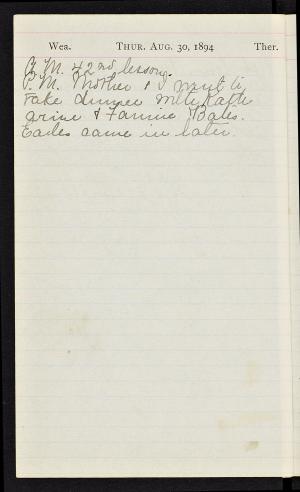 Wea. THUR. AUG. 30, 1894 Ther.
A. M. 42nd lesson.
P. M. Mother & I went to
take dinner with Kath
arine & Fannie Bates.
Earles came in later.